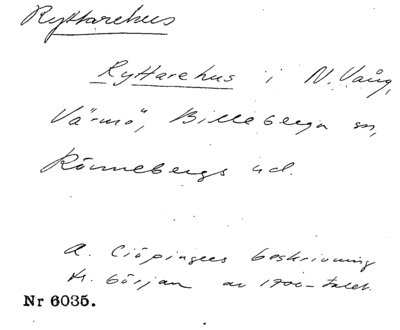 Ryttarehus
Ryttarehus i N. Vång,
Värmö, Billeberga sn,
Rönnebergs hd.
A. Ciöpingers beskrivning
fr. början av 1700-talet.
Nr 6035.